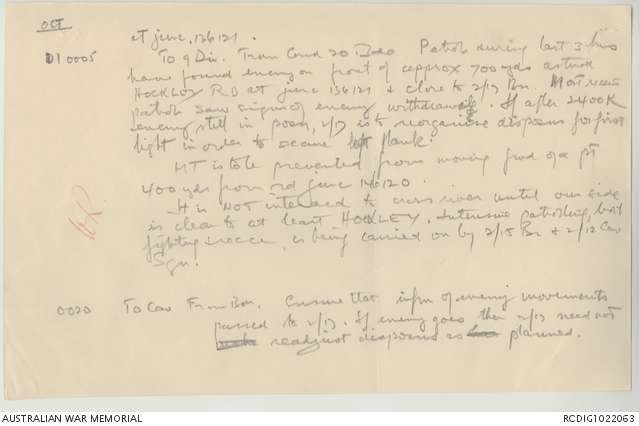 OCT
at junc. 136121.
D1 0005 To 9 Div. From Comd 20 Bde Patrols during last 3 hrs
have found enemy on front of approx 700 yds astride
HOCKLEY RD at junc 136121 & close to 2/17 Bn. Most recent
patrol saw signs of enemy withdrawing. If after 2400K
enemy still in posn, 2/17 is to reorganise disposns for first
light in order to secure left flank.
MT is to be prevented from moving fwd of a pt
400 yds from rd junc 146120.
It is NOT intended to cross river until our side
is clear to at least HOCKLEY. Intensive patrolling, both
fighting & recce, is being carried on by 2/15 Bn & 2/12 Cav
Sqn.
0020 To Cav From Bn. Ensure that infm of enemy movements
passed to 2/17. If enemy goes then 2/17 need not
readjust disposns as planned.
AUSTRALIAN WAR MEMORIAL
RCDIG1022063